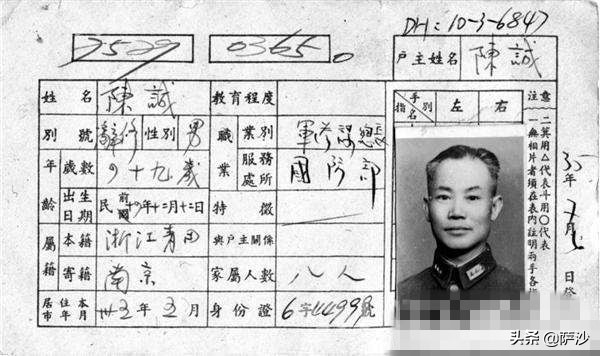 DH: 10-3-6847
7529 0365。
戶主姓名 陳誠
姓名 陳誠 教育程度
別號 辭修 性別 男 職業 業別 軍 參謀總長
年齡 歲數 四十九歲 服務處所 國防部
出生日期 民前國 年十二月十二日 特徵
屬籍 本籍 浙江青田 與戶主關係
寄籍 南京 家屬人數 八人
居住本市年月 卅五年五月 身份證 6字4499號
手別 指名 左 右
注意
一無相片者須在表內註明兩手各指
二箕用△代表斗用○代表
35年 月 日
头条 @萨沙